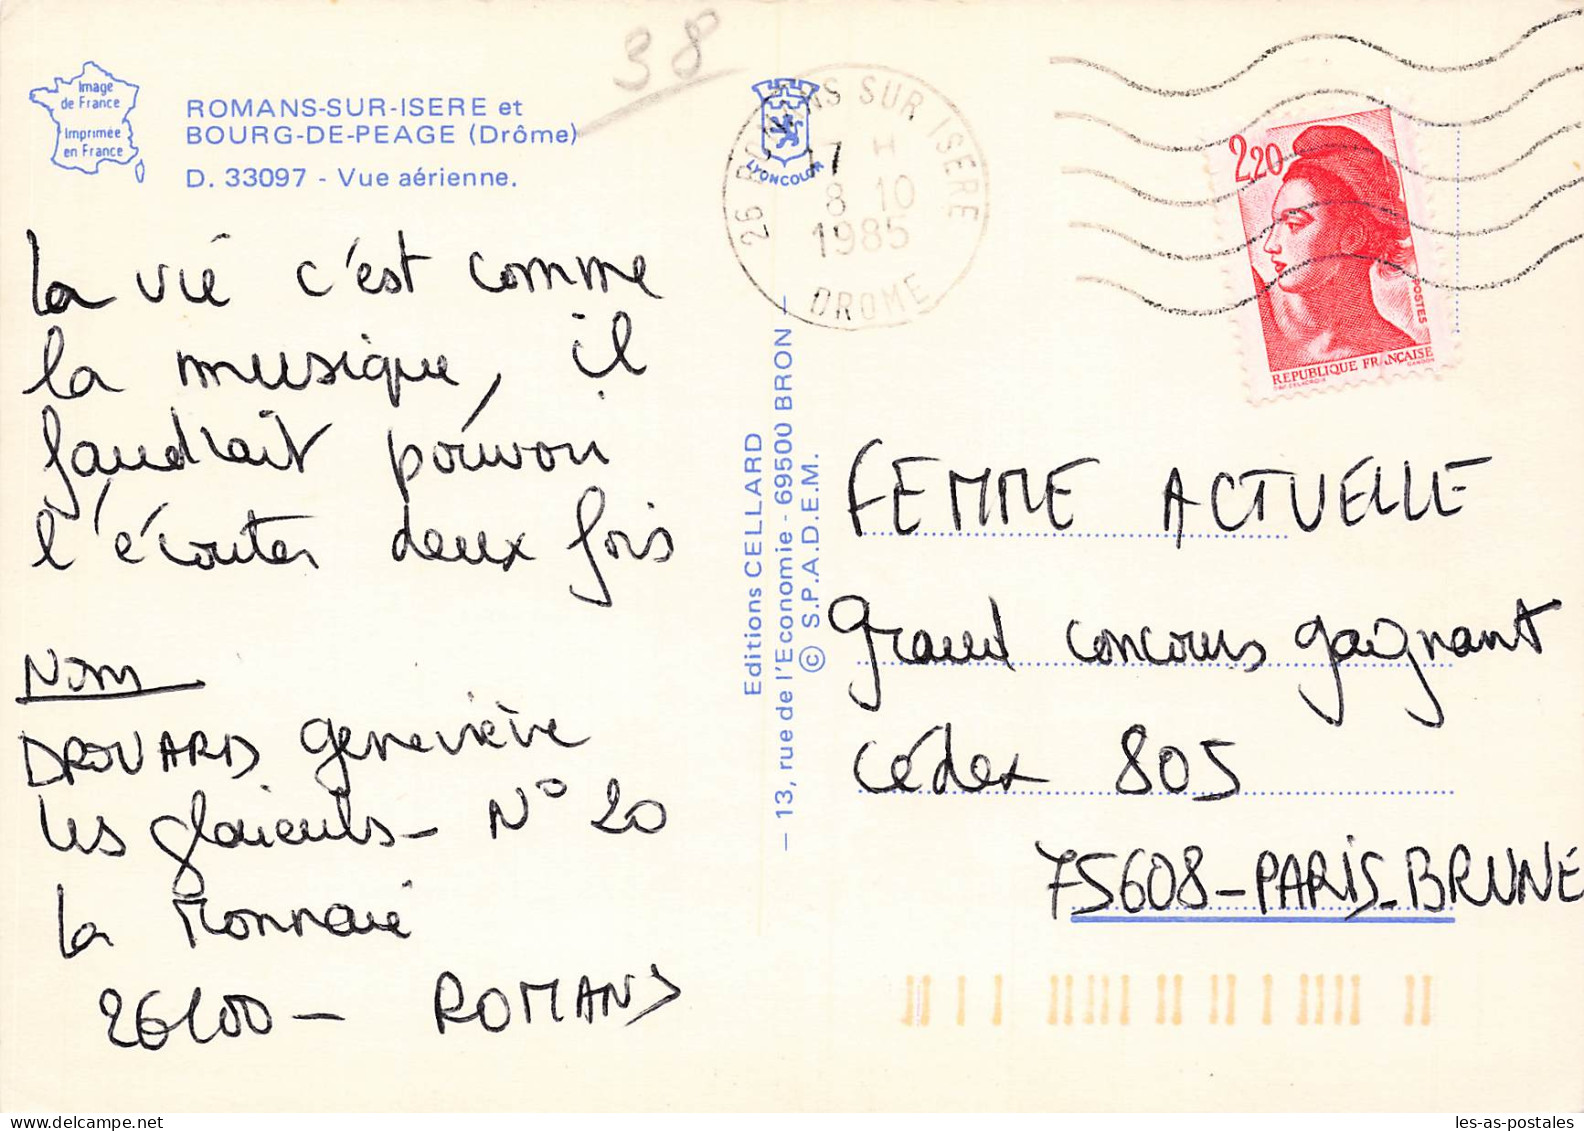 38
Image
de France
Imprimée
en France
ROMANS-SUR-ISERE et
BOURG-DE-PEAGE (Drôme)
D. 33097 - Vue aérienne.
LYONCOLOR
26 ROMANS SUR ISERE
17 H
8 10
1985
DROME
2,20
POSTES
REPUBLIQUE FRANÇAISE
La vie c'est comme
la musique, il
faudrait pouvoir
l'écouter deux fois
Nom
DROUARD Geneviève
Les glaieuls - N° 20
la Monnaie
26100 - ROMANS
Editions CELLARD
- 13, rue de l'Economie - 69500 BRON -
© S.P.A.D.E.M.
FEMME ACTUELLE
Grand concours gagnant
Cédex 805
75608 - PARIS - BRUNE
les-as-postales